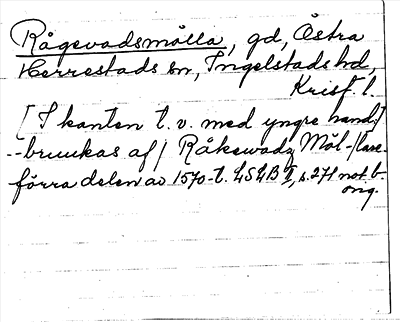 Rågevadsmölla, gd, Östra
Herrestads sn, Ingelstads hd,
Krist. l.
[I kanten t. v. med yngre hand:]
--bruukas af/ Råkewadz Möl-/lare
förra delen av 1570-t. LSLB I, s. 271 not b.
orig.